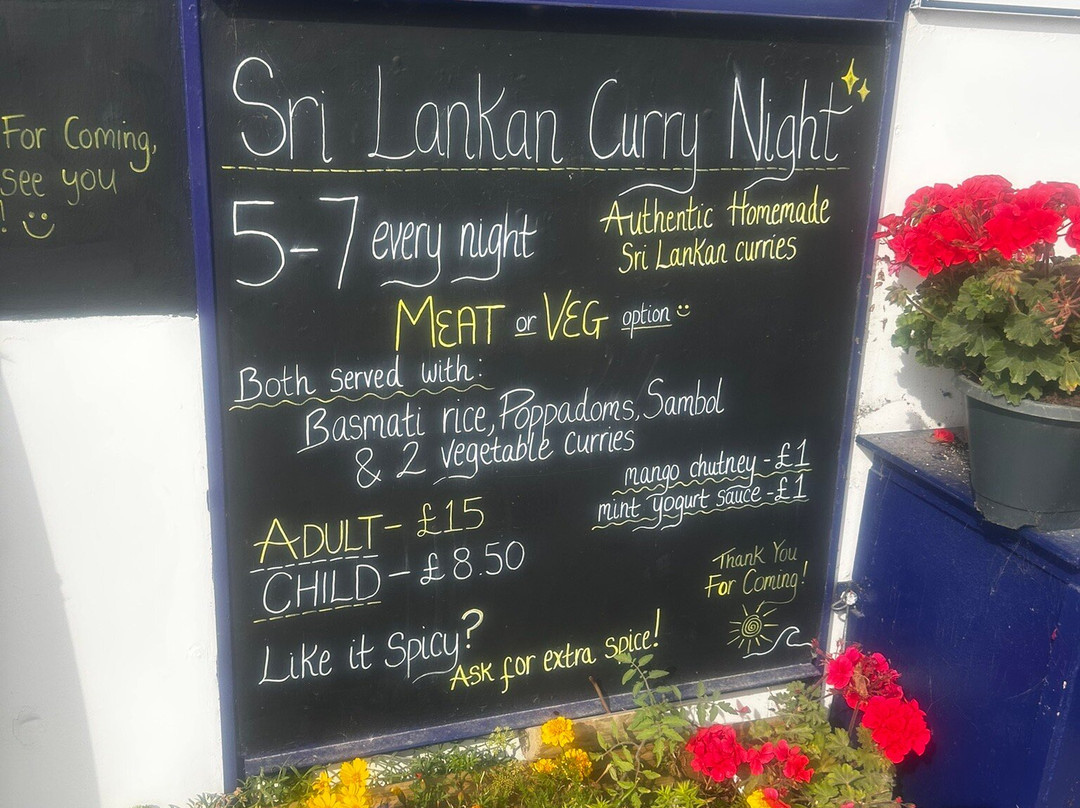 For Coming,
see you
! :)
Sri Lankan Curry Night
5-7 every night
Authentic Homemade
Sri Lankan curries
MEAT or VEG option :)
Both served with:
Basmati rice, Poppadoms, Sambol
& 2 vegetable curries
mango chutney - £1
mint yogurt sauce - £1
ADULT - £15
CHILD - £8.50
Thank You
For Coming!
Like it Spicy?
Ask for extra spice!